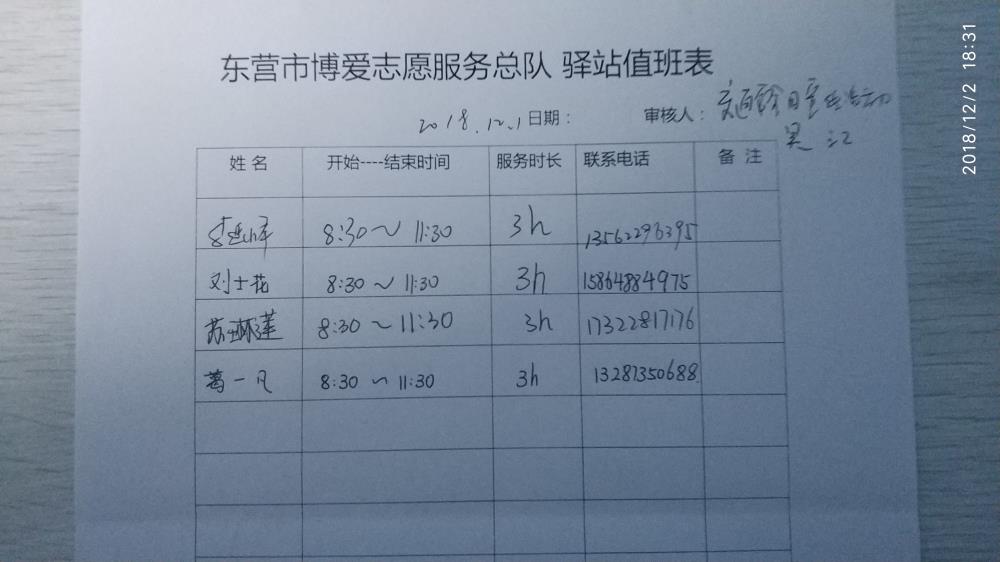 东营市博爱志愿服务总队 驿站值班表
2018.12.1 日期： 审核人：
吴江
姓名 开始----结束时间 服务时长 联系电话 备注
8:30~11:30 3h 13562296395
刘士花 8:30~11:30 3h 15864884975
苏琳莲 8:30~11:30 3h 17322817176
葛一凡 8:30~11:30 3h 13287350688
2018/12/2 18:31